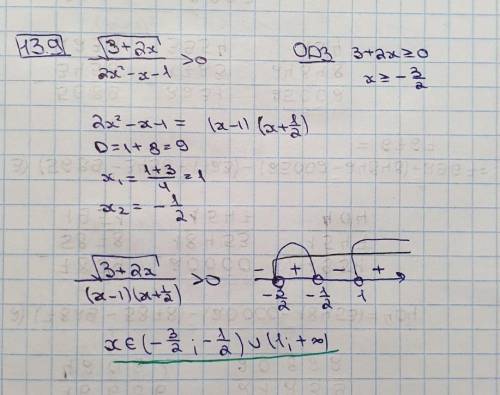 13.9 √(3+2x) / (2x²-x-1) >0 ОДЗ 3+2x≥0
x≥-3/2
2x²-x-1= (x-1)(x+1/2)
D=1+8=9
x₁=(1+3)/4=1
x₂=-1/2
√(3+2x) / ((x-1)(x+1/2)) >0
- + - +
-3/2 -1/2 1
x∈(-3/2;-1/2)∪(1;+∞)